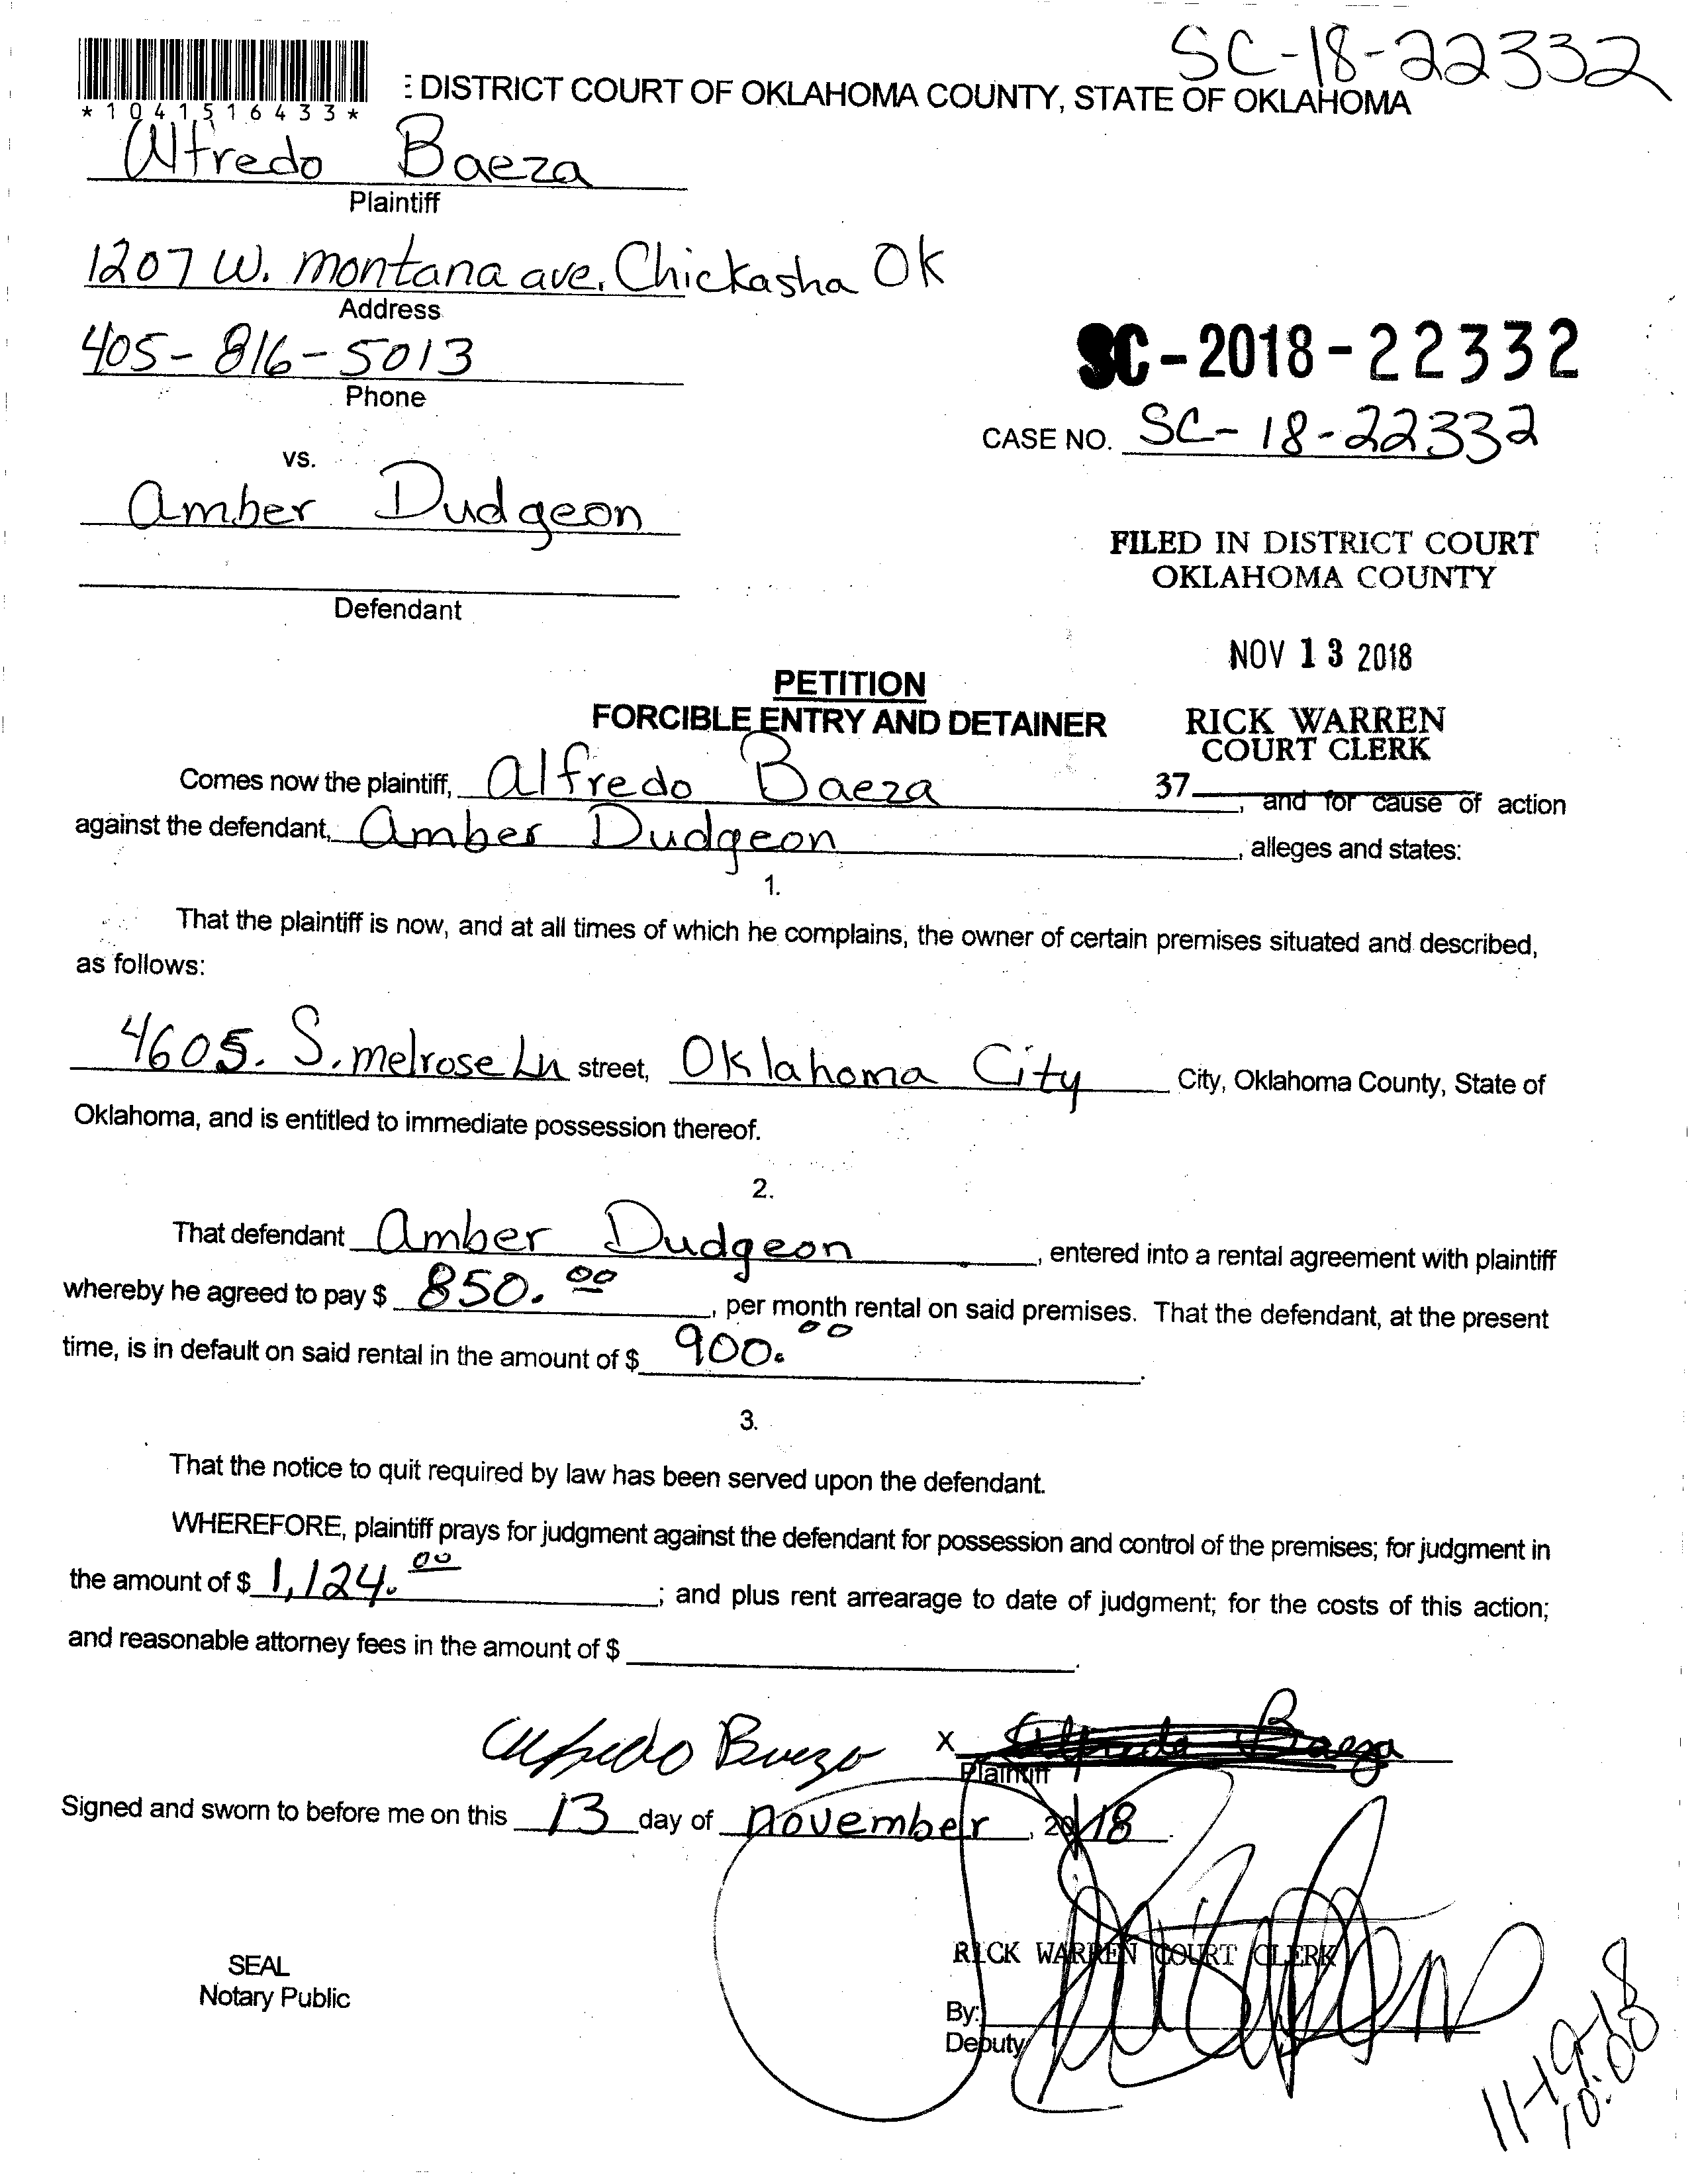 SC-18-22332
: DISTRICT COURT OF OKLAHOMA COUNTY, STATE OF OKLAHOMA
*1041516433*
Alfredo Baeza
Plaintiff
1207 W. Montana ave. Chickasha OK
Address
405-816-5013
Phone
SC-2018-22332
CASE NO. SC-18-22332
vs.
Amber Dudgeon
Defendant
FILED IN DISTRICT COURT
OKLAHOMA COUNTY
NOV 13 2018
RICK WARREN
COURT CLERK
37
PETITION
FORCIBLE ENTRY AND DETAINER
Comes now the plaintiff, Alfredo Baeza, and for cause of action
against the defendant, Amber Dudgeon, alleges and states:
1.
That the plaintiff is now, and at all times of which he complains, the owner of certain premises situated and described,
as follows:
4605. S. melrose Ln street, Oklahoma City City, Oklahoma County, State of
Oklahoma, and is entitled to immediate possession thereof.
2.
That defendant Amber Dudgeon, entered into a rental agreement with plaintiff
whereby he agreed to pay $ 850.00, per month rental on said premises. That the defendant, at the present
time, is in default on said rental in the amount of $ 900.00.
3.
That the notice to quit required by law has been served upon the defendant.
WHEREFORE, plaintiff prays for judgment against the defendant for possession and control of the premises; for judgment in
the amount of $ 1,124.00; and plus rent arrearage to date of judgment; for the costs of this action;
and reasonable attorney fees in the amount of $ .
Alfredo Baeza X Alfredo Baeza
Plaintiff
Signed and sworn to before me on this 13 day of November, 2018.
SEAL
Notary Public
RICK WARREN COURT CLERK
By:
Deputy
11-19-18
10:00